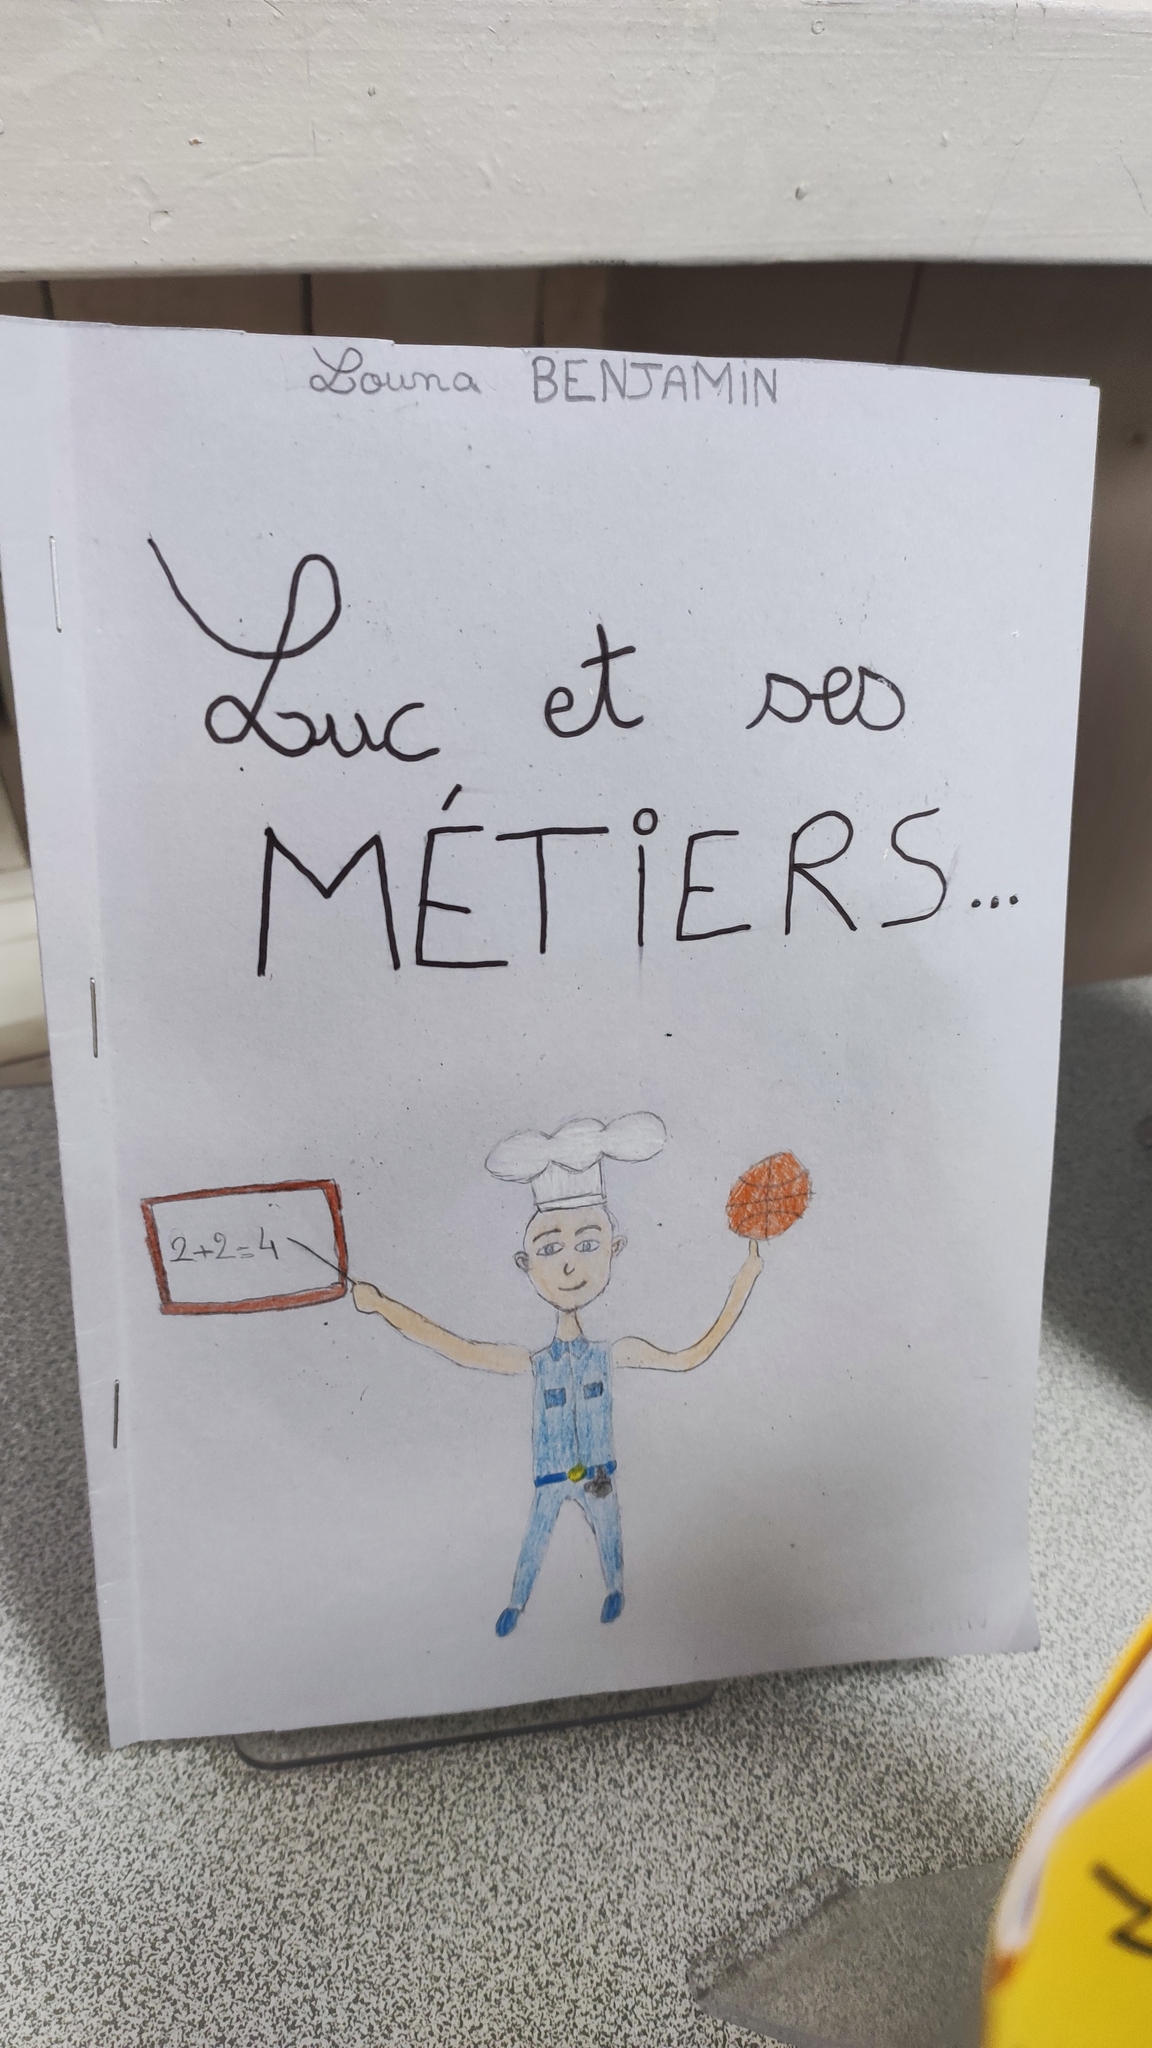 Louna BENJAMIN
Luc et ses
MÉTiERS...
2+2=4